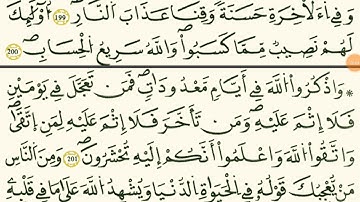 وَفِي اِ۬لَاخِرَةِ حَسَنَةٗ وَقِنَا عَذَابَ اَ۬لنّ۪ارِۖ 199 أُوْلَٰٓئِكَ
لَهُمْ نَصِيبٞ مِّمَّا كَسَبُواْۖ وَاللَّهُ سَرِيعُ اُ۬لْحِسَابِۖ 200
* وَاذْكُرُواْ اُ۬للَّهَ فِےٓ أَيَّامٖ مَّعْدُودَٰتٖۖ فَمَن تَعَجَّلَ فِے يَوْمَيْنِ
فَلَآ إِثْمَ عَلَيْهِۖ وَمَن تَأَخَّرَ فَلَآ إِثْمَ عَلَيْهِ لِمَنِ اِ۪تَّق۪ىٰۖ
وَاتَّقُواْ اُ۬للَّهَ وَاعْلَمُوٓاْ أَنَّكُمُۥٓ إِلَيْهِ تُحْشَرُونَۖ 201 وَمِنَ اَ۬لنَّاسِ
مَنْ يُّعْجِبُكَ قَوْلُهُۥ فِے اِ۬لْحَيَوٰةِ اِ۬لدُّنْي۪ا وَيُشْهِدُ اُ۬للَّهَ عَلَىٰ مَا فِے قَلْبِهِۦ